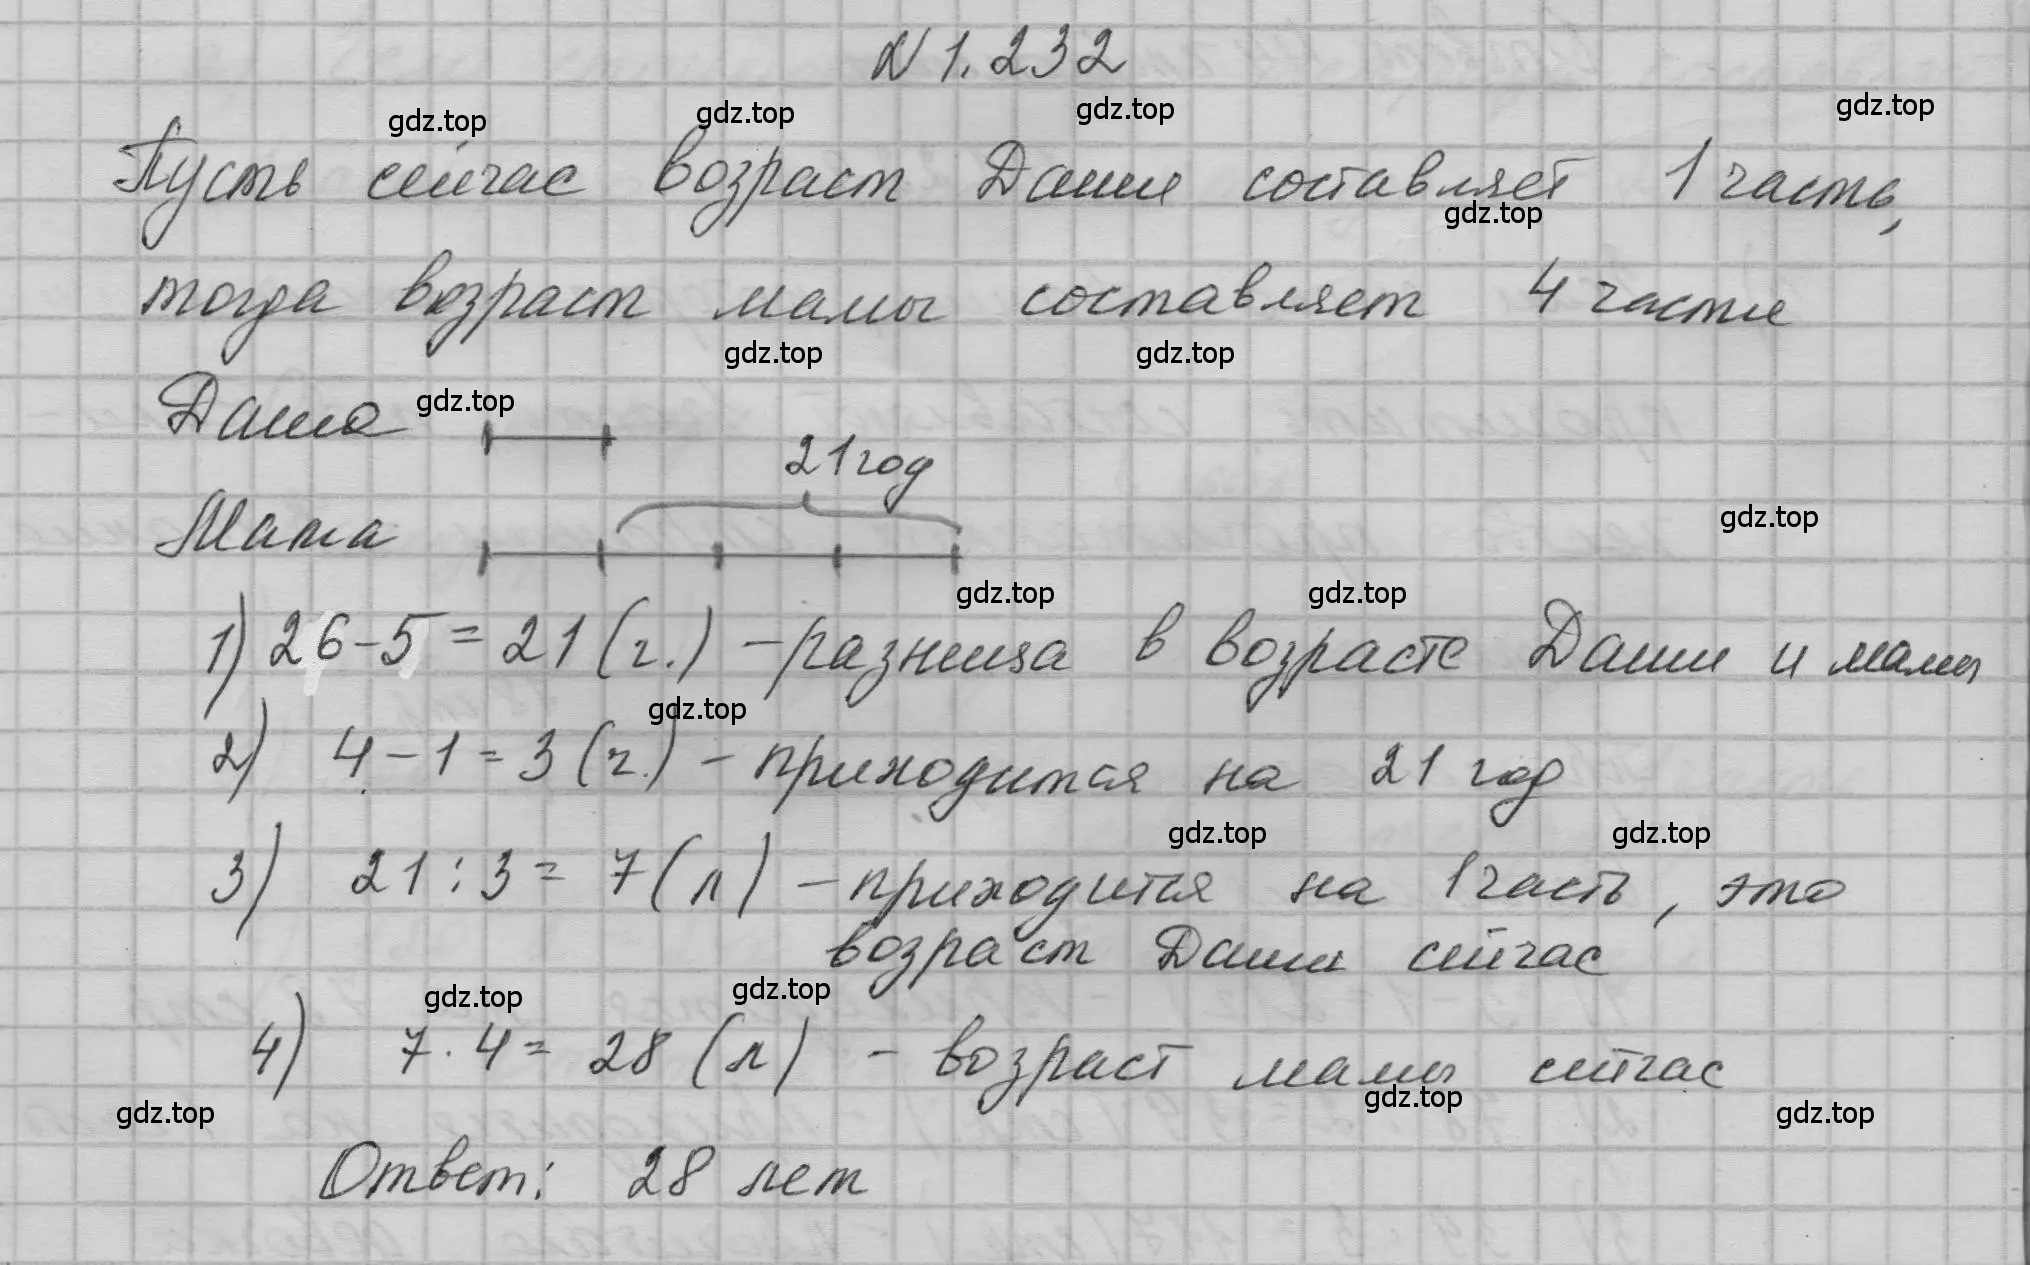 N 1.232
gdz.top gdz.top gdz.top gdz.top
Пусть сейчас возраст Даши составляет 1 часть,
gdz.top
тогда возраст мамы составляет 4 части
gdz.top gdz.top
Даша gdz.top
21 год
Мама gdz.top
gdz.top gdz.top
1) 26-5=21 (г.) - разница в возрасте Даши и мамы
gdz.top
2) 4-1=3 (ч.) - приходится на 21 год
gdz.top gdz.top
3) 21:3=7 (л) - приходится на 1 часть, это
возраст Даши сейчас
gdz.top gdz.top
4) 7·4=28 (л) - возраст мамы сейчас
gdz.top gdz.top gdz.top
Ответ: 28 лет